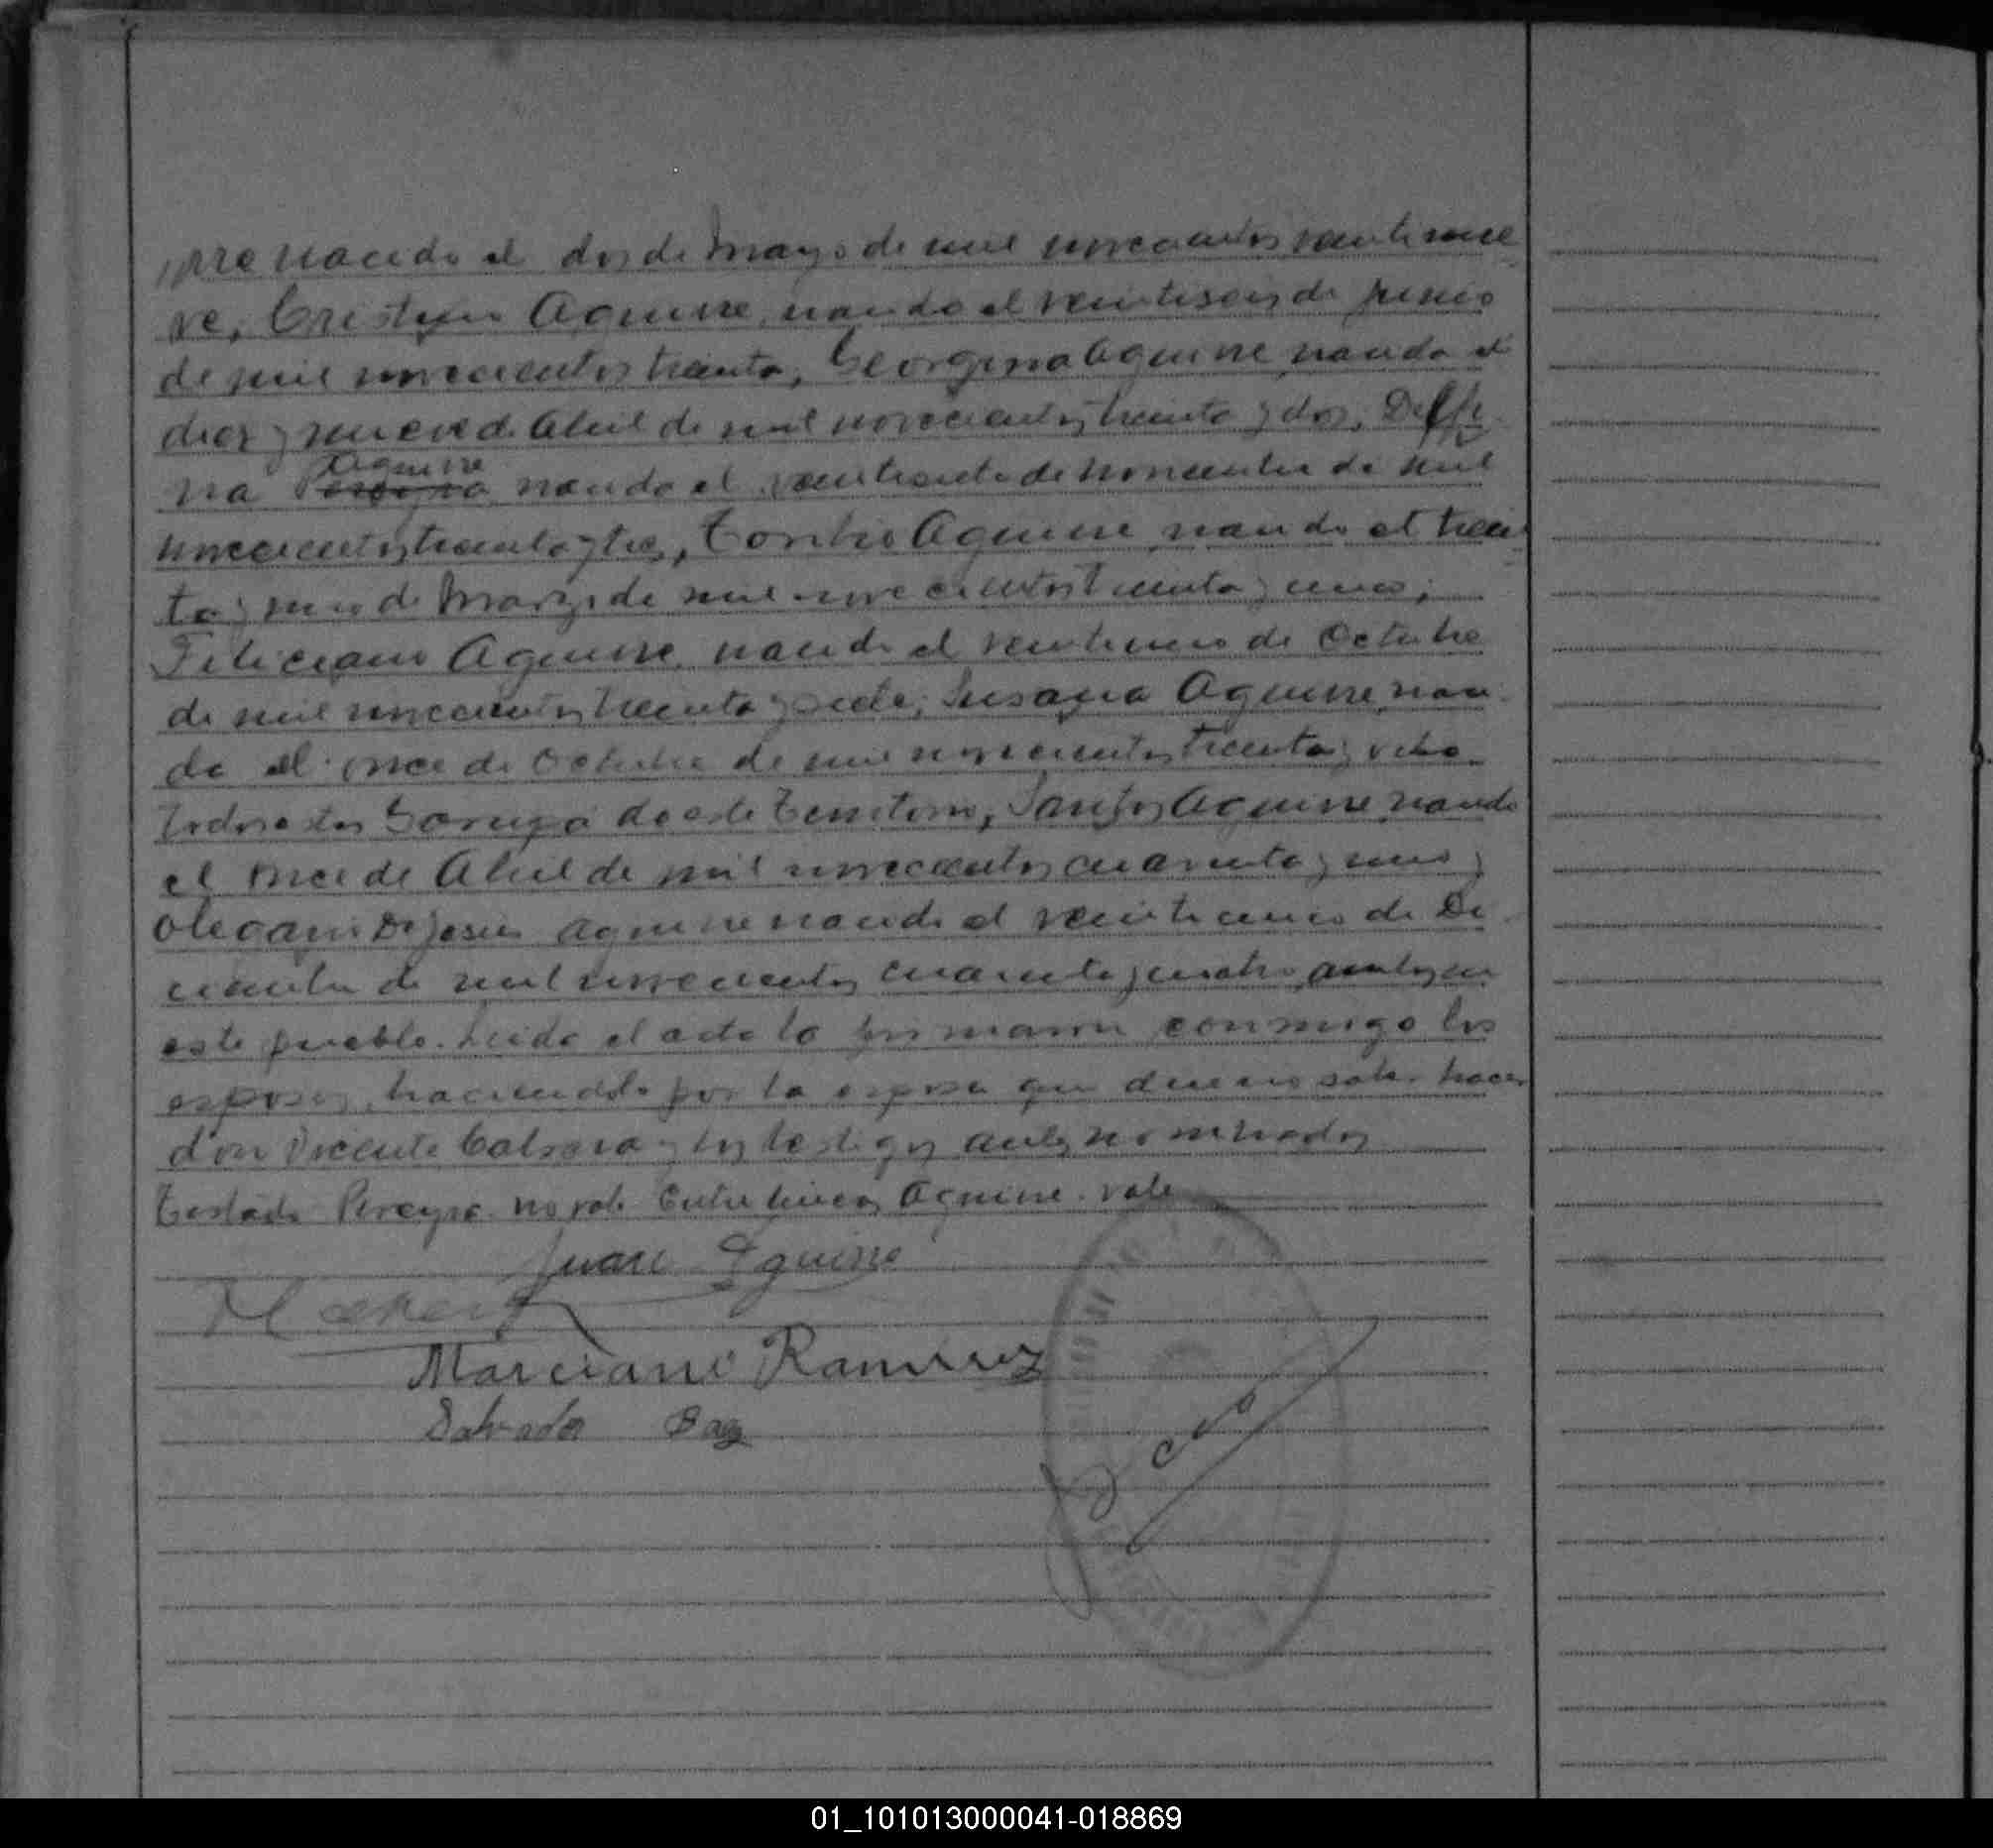 rre nacido el dos de Mayo de mil novecientos veintinue
ve, Aguirre, nacido el veintiseis de junio
de mil novecientos treinta, Georgina Aguirre nacida el
diez y nueve de Abril de mil novecientos treinta y dos, Delfi
na Aguirre Pereyra nacida el veintisiete de Noviembre de mil
novecientos treinta y tres, Aguirre nacido el trein
ta y uno de Marzo de mil novecientos treinta y cinco;
Feliciano Aguirre nacido el de Octubre
de mil novecientos treinta y siete; Susana Aguirre, naci
da el once de Octubre de mil novecientos treinta y ocho
Todos estos de este Territorio, Santos Aguirre nacido
el once de Abril de mil novecientos cuarenta y uno y
Olegario De Jesus Aguirre nacido el de Di
ciembre de mil novecientos cuarenta y cuatro, ambos en
este pueblo. Leida el acta la firmaron conmigo los
esposos, haciendolo por la esposa que dice no saber hacer
don Vicente y los testigos antes nombrados
Testado Pereyra no vale Entre lineas Aguirre. vale
Juan Aguirre
Marciano Ramirez
Salvador
01_101013000041-018869